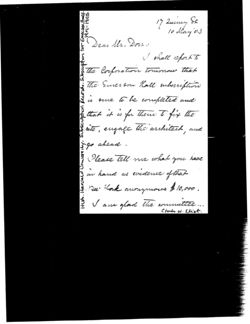 17 Quincy St
10 May 03
Dear Mr. Dorr:
I shall report to
the Corporation tomorrow that
the Emerson Hall subscription
is sure to be completed and
that it is for them to fix the
site, engage the architect, and
go ahead.
Please tell me what you have
in hand as evidence of that
New York anonymous $10,000.
I am glad the committee...
Charles W. Eliot